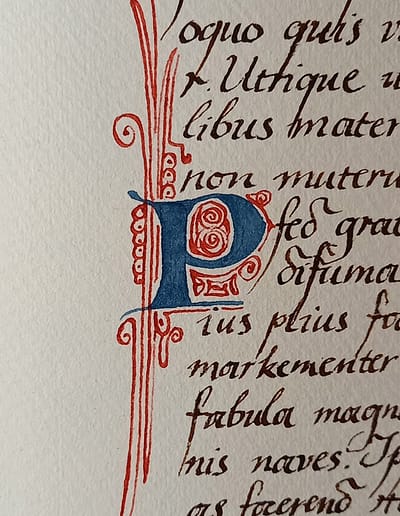 oquo quis v
r. Uttique u
libus mater
non muteru
P fed̃ grat
d̃ifuma
ius plius fo
markementer
fabula magn
nis naves. Ip
as faerend̃ Ha